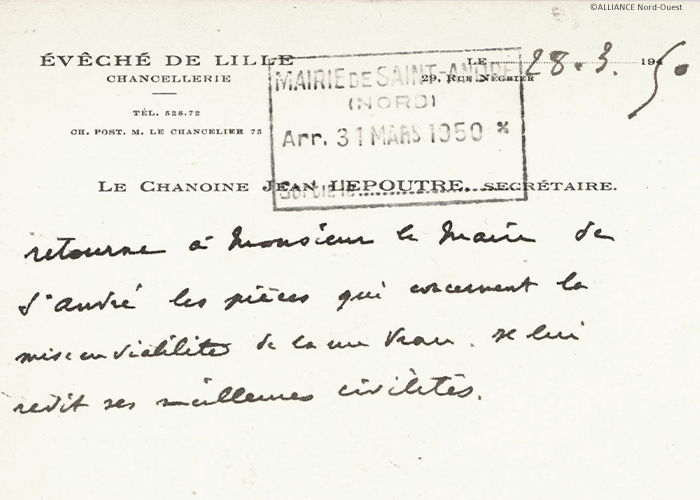 ©ALLIANCE Nord-Ouest
ÉVÊCHÉ DE LILLE
CHANCELLERIE
TÉL. 528.72
CH. POST. M. LE CHANCELIER 75
LE 28.3. 194 50
29, Rue Négrier
MAIRIE DE SAINT-ANDRÉ
(NORD)
Arr. 31 MARS 1950 *
Sortie le
LE CHANOINE JEAN LEPOUTRE, SECRÉTAIRE.
retourne à Monsieur le Maire de
St André les pièces qui concernent la
mise en viabilité de la rue . Je lui
redit ses meilleures civilités.